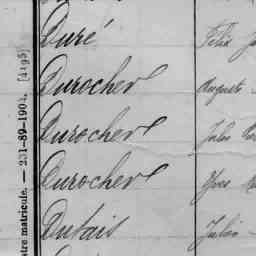 Duré Félix
Durocher Auguste
Durocher Jules
Durocher Yves
Dutais Julien
atre matricule. — 231-89-1904. [4195]